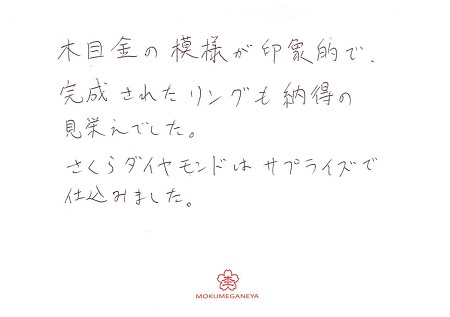 木目金の模様が印象的で、
完成されたリングも納得の
見栄えでした。
さくらダイヤモンドはサプライズで
仕込みました。
MOKUMEGANEYA